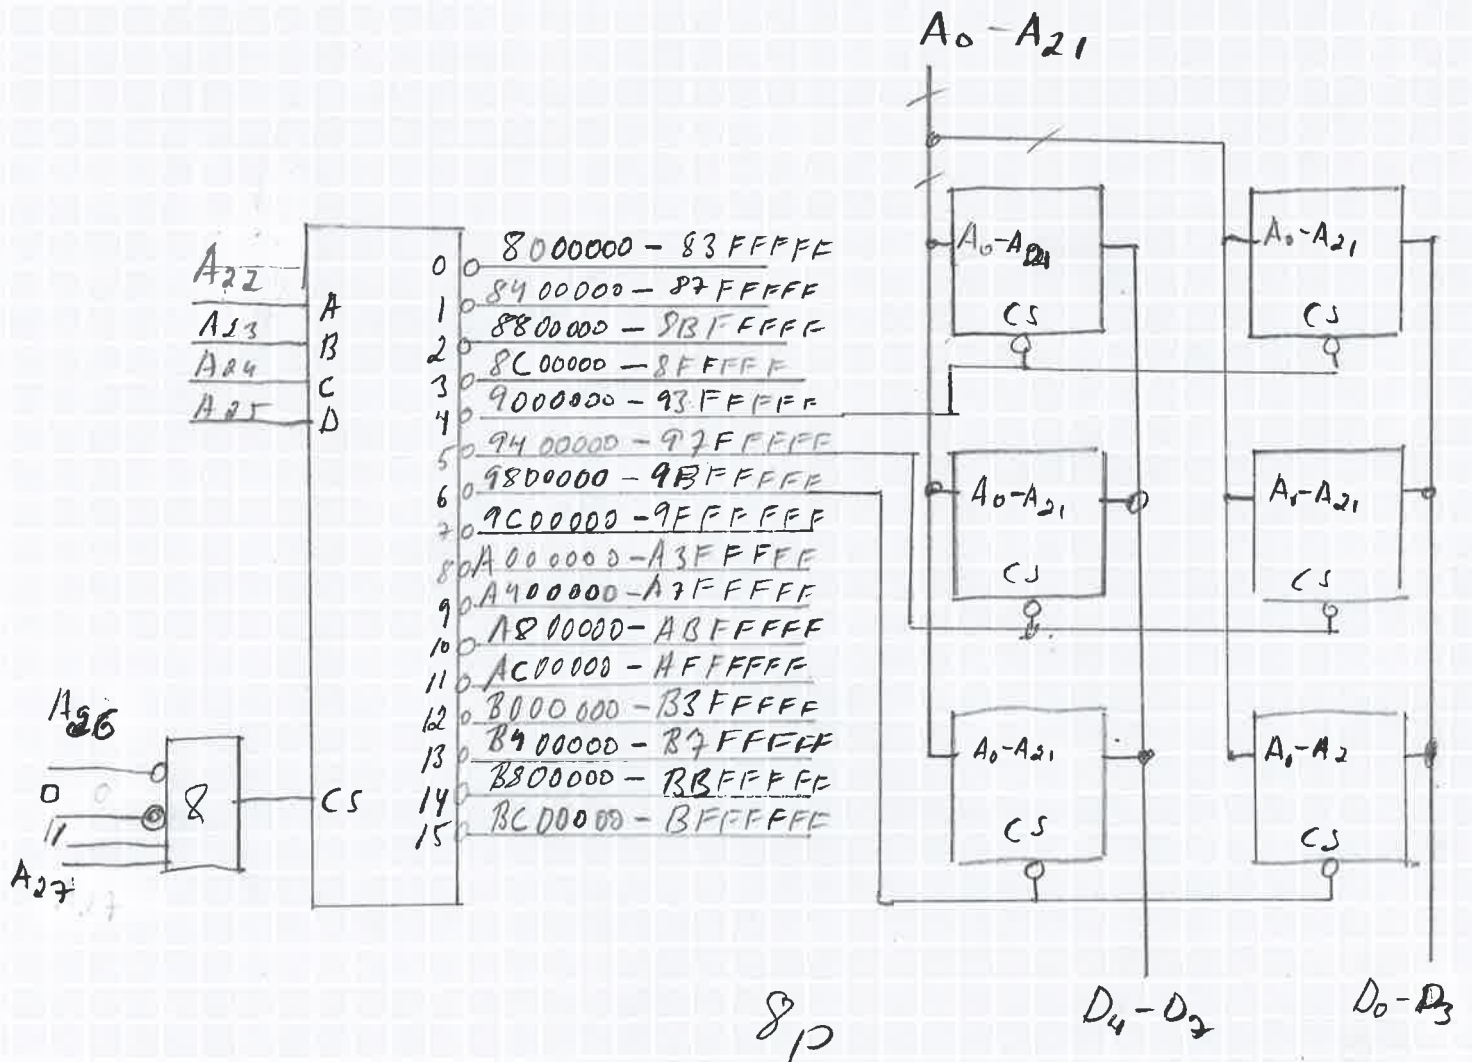 A0 - A21
A22
A23
A24
A25
A
B
C
D
0 8000000 - 83FFFFF
1 8400000 - 87FFFFF
2 8800000 - 8BFFFFF
3 8C00000 - 8FFFFF
4 9000000 - 93FFFFF
5 9400000 - 97FFFFF
6 9800000 - 9BFFFFF
7 9C00000 - 9FFFFFF
8 A000000 - A3FFFFF
9 A400000 - A7FFFFF
10 A800000 - ABFFFFF
11 AC00000 - AFFFFFF
12 B000000 - B3FFFFF
13 B400000 - B7FFFFF
14 B800000 - BBFFFFF
15 BC00000 - BFFFFFF
A26
0
A27
8
CS
A0-A21
CS
A0-A21
CS
A0-A21
CS
CS
A0-A21
CS
A0-A2
CS
8p
D4-D7
D0-D3